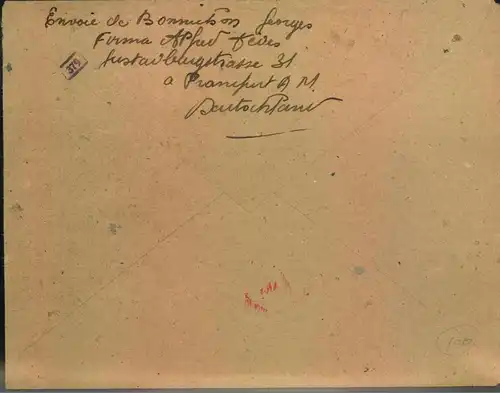 Envoie de Bonnichon Georges
Firma Alfred Teves
Gustavburgstrasse 31
376
a Francfort A M.
Deutschland